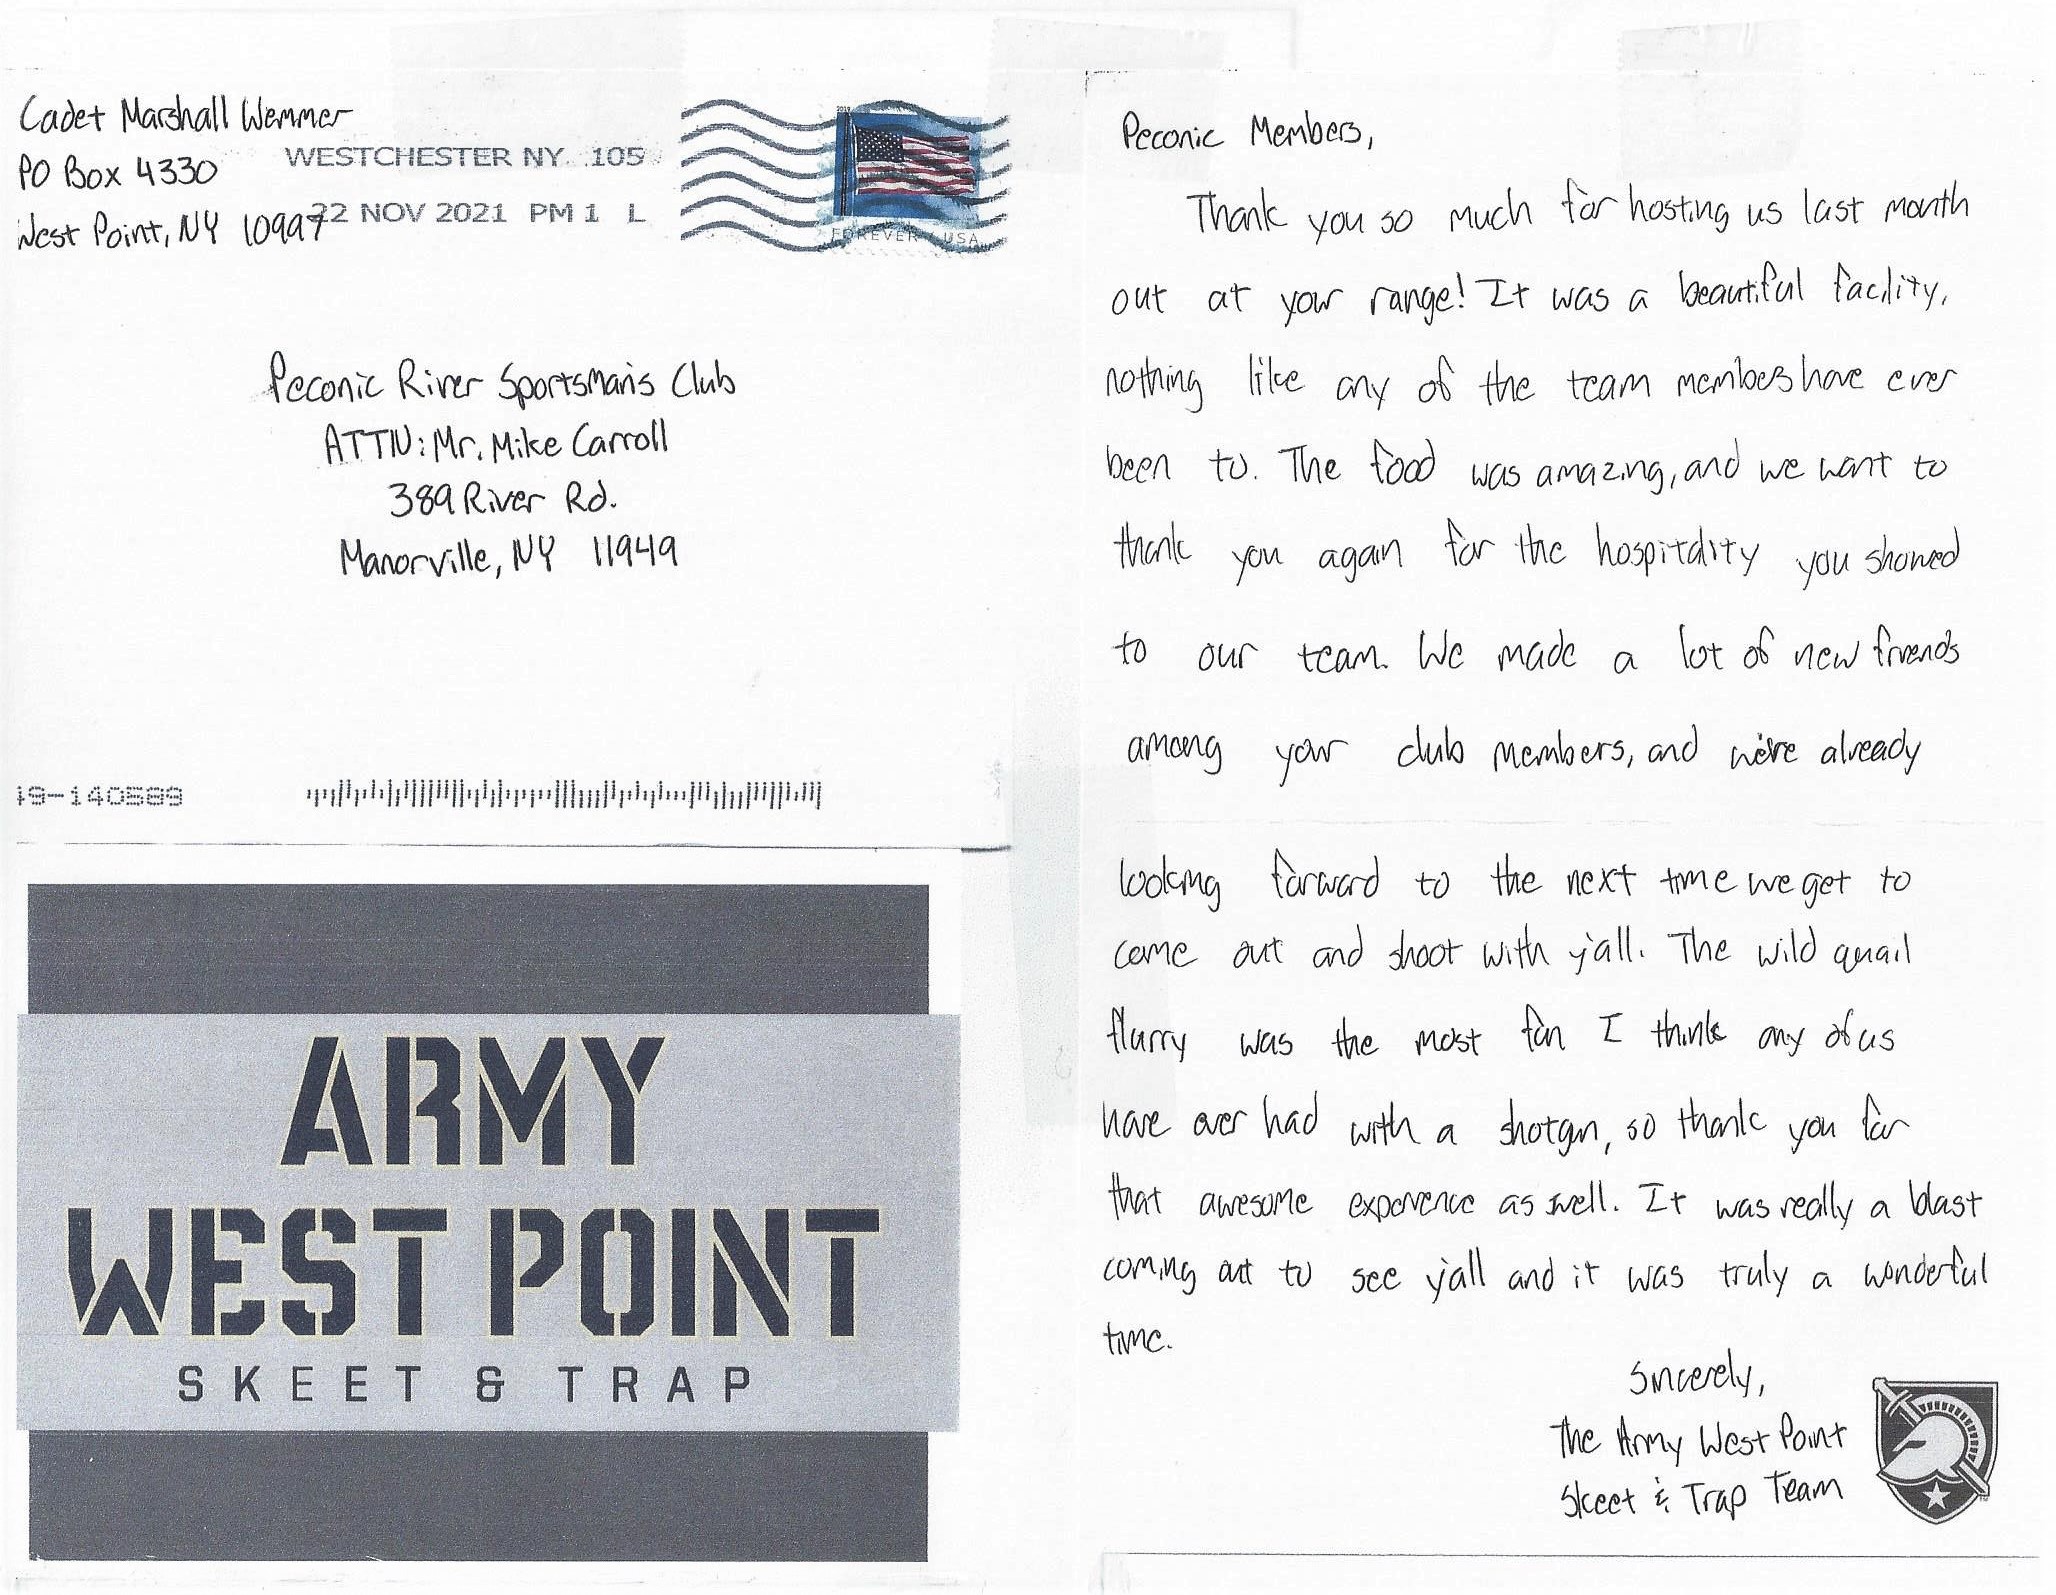 Cadet Marshall Wemmer
PO Box 4330
West Point, NY 10997
WESTCHESTER NY 105
22 NOV 2021 PM 1 L
2019
FOREVER USA
Peconic River Sportsman's Club
ATTN: Mr. Mike Carroll
389 River Rd.
Manorville, NY 11949
49-140589
ARMY
WEST POINT
SKEET & TRAP
Peconic Members,
Thank you so much for hosting us last month
out at your range! It was a beautiful facility,
nothing like any of the team members have ever
been to. The food was amazing, and we want to
thank you again for the hospitality you showed
to our team. We made a lot of new friends
among your club members, and we're already
looking forward to the next time we get to
come out and shoot with y'all. The wild quail
flurry was the most fun I think any of us
have ever had with a shotgun, so thank you for
that awesome experience as well. It was really a blast
coming out to see y'all and it was truly a wonderful
time.
Sincerely,
The Army West Point
Skeet & Trap Team
TM